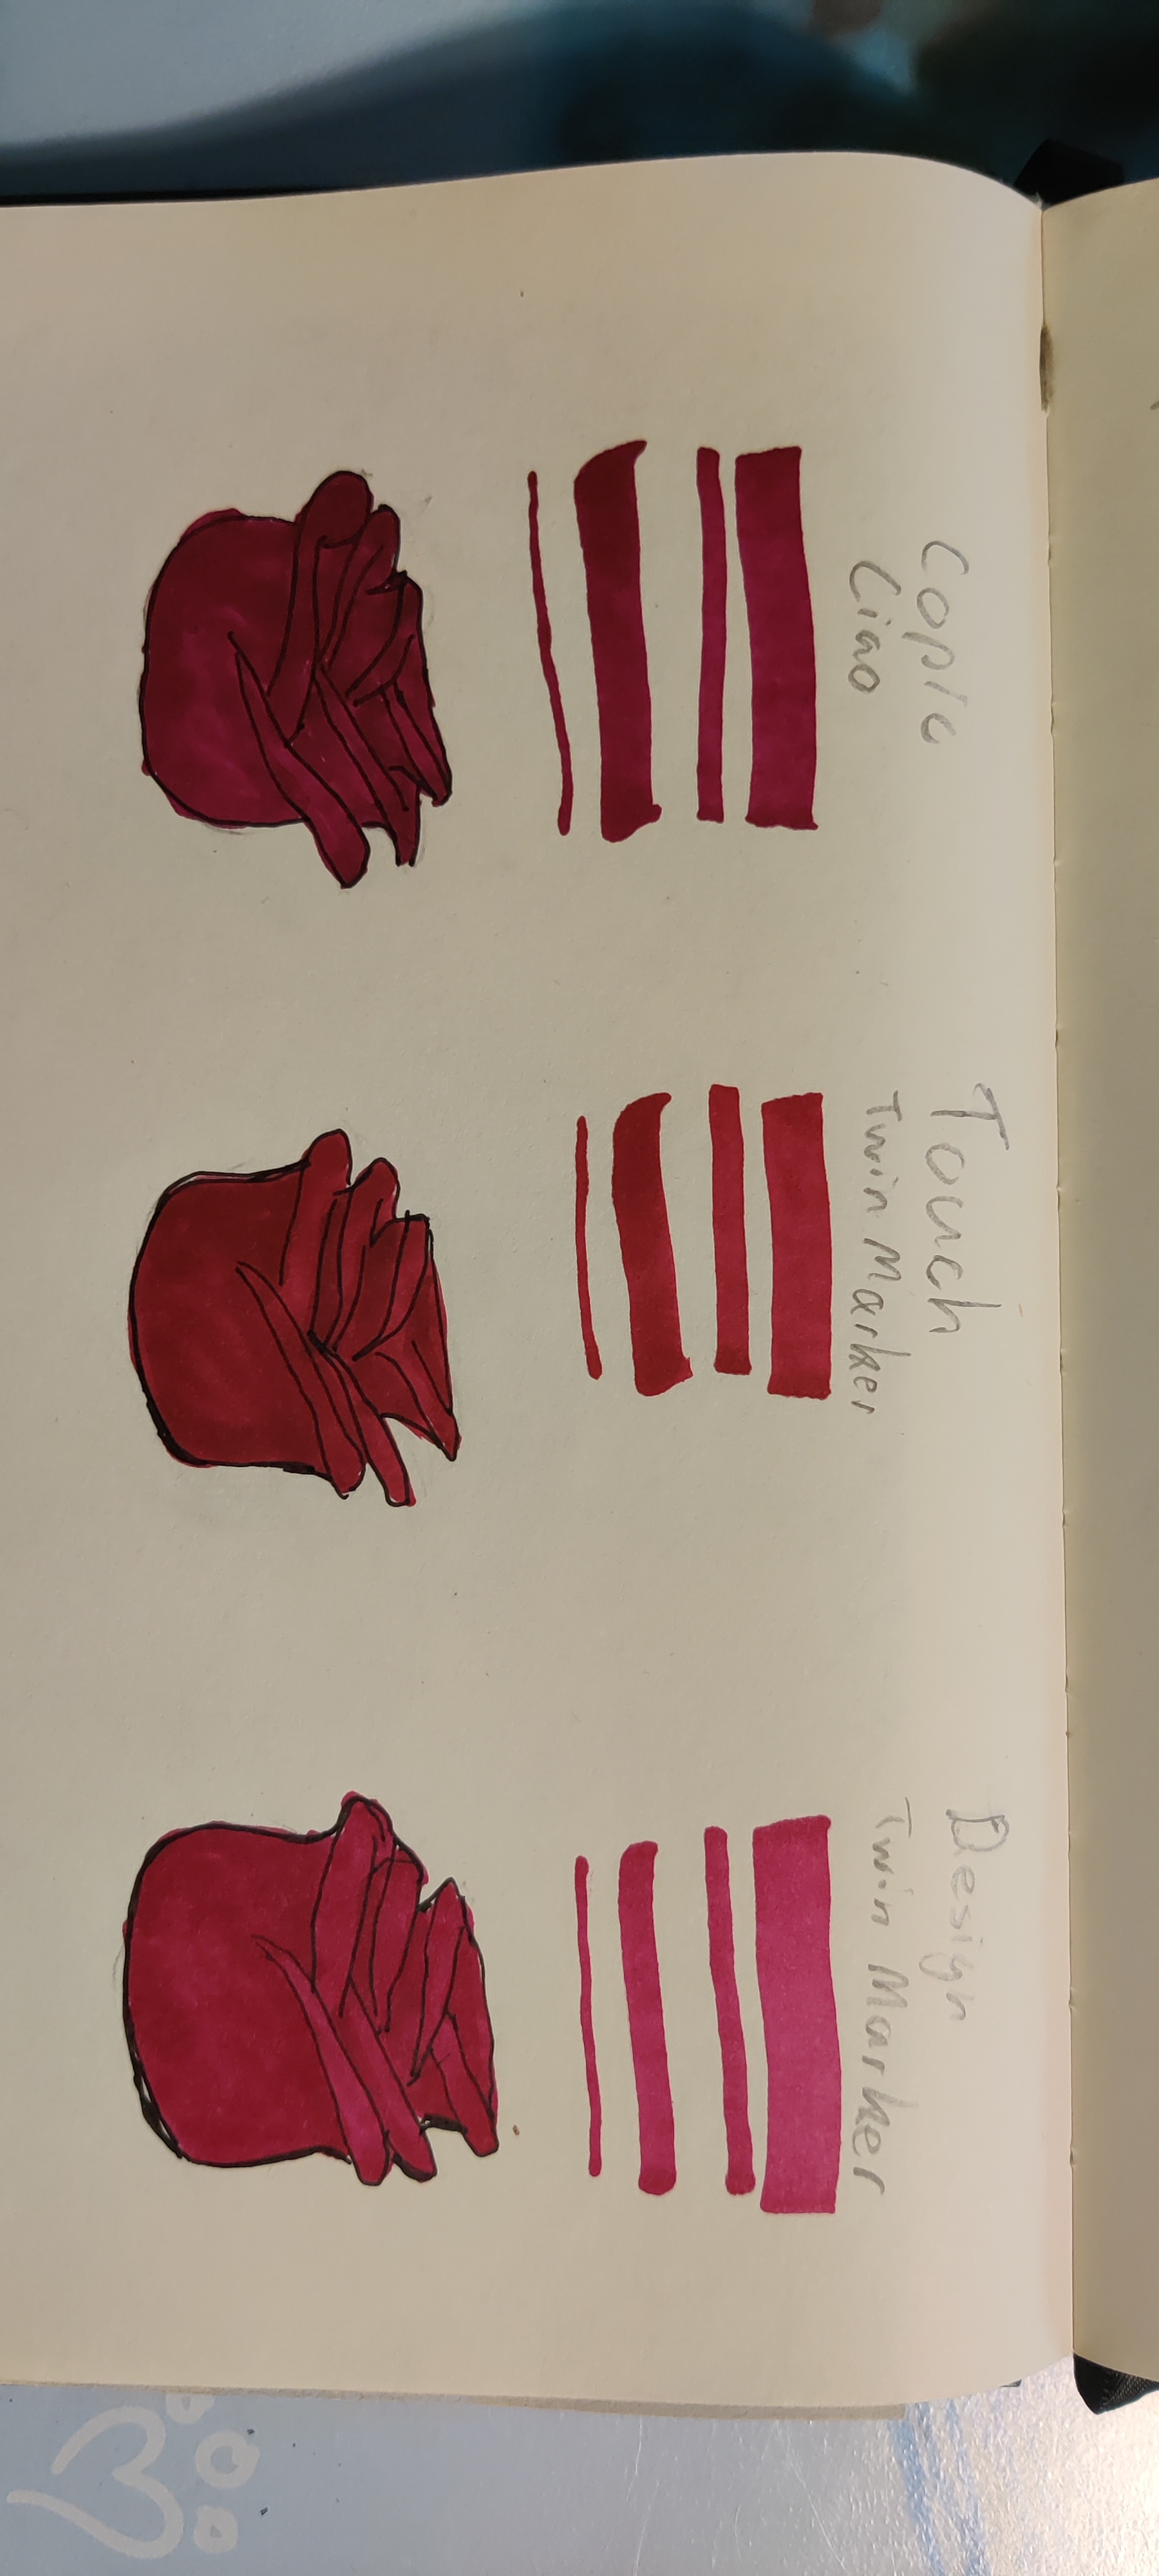 Copic
Ciao
Touch
Twin Marker
Design
Twin Marker